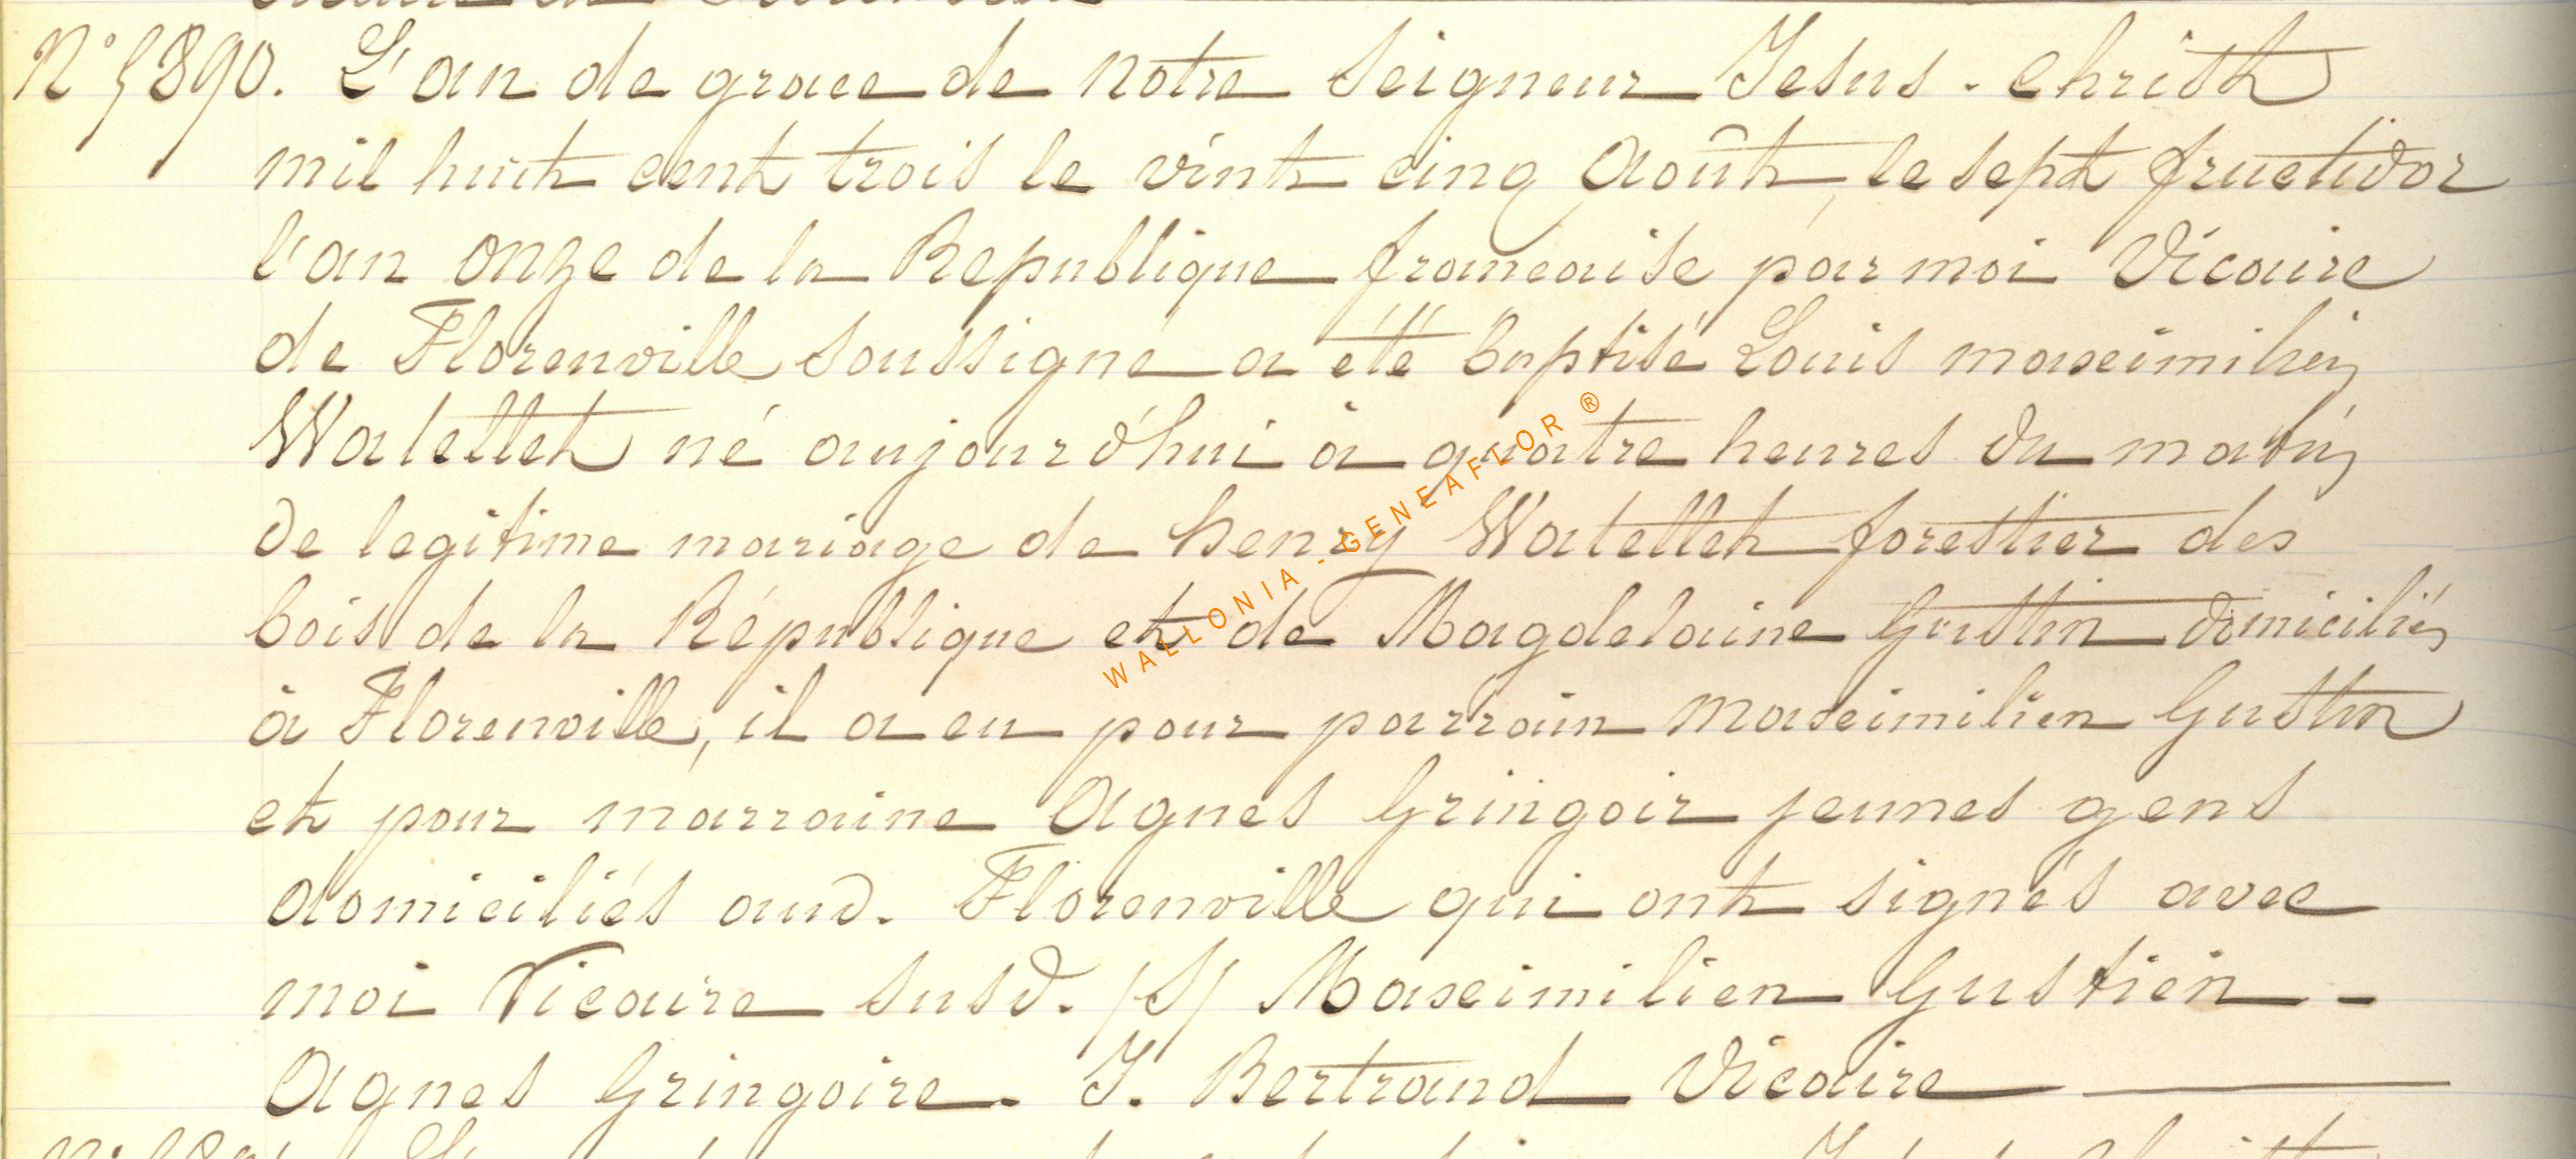 N° 5890. L'an de grace de notre Seigneur Jesus-Christ
mil huit cent trois le vint cinq Août, le sept fructidor
l'an onze de la Republique francaise par moi Vicaire
de Florenville soussigné a été baptisé Louis maximilien
Watellet né aujourd'hui à quatre heures du matin
de legitime mariage de henry Watellet forestier des
bois de la République et de Magdelaine Gustin domiciliés
à Florenville, il a eu pour parrain Maximilien Gustin
et pour marraine Agnes Gringoir jeunes gens
domiciliés aud. Florenville qui ont signés avec
moi Vicaire susd. /S/ Maximilien Gustien -
Agnes Gringoire. J. Bertrand Vicaire
WALLONIA - GENEAFLOR ®